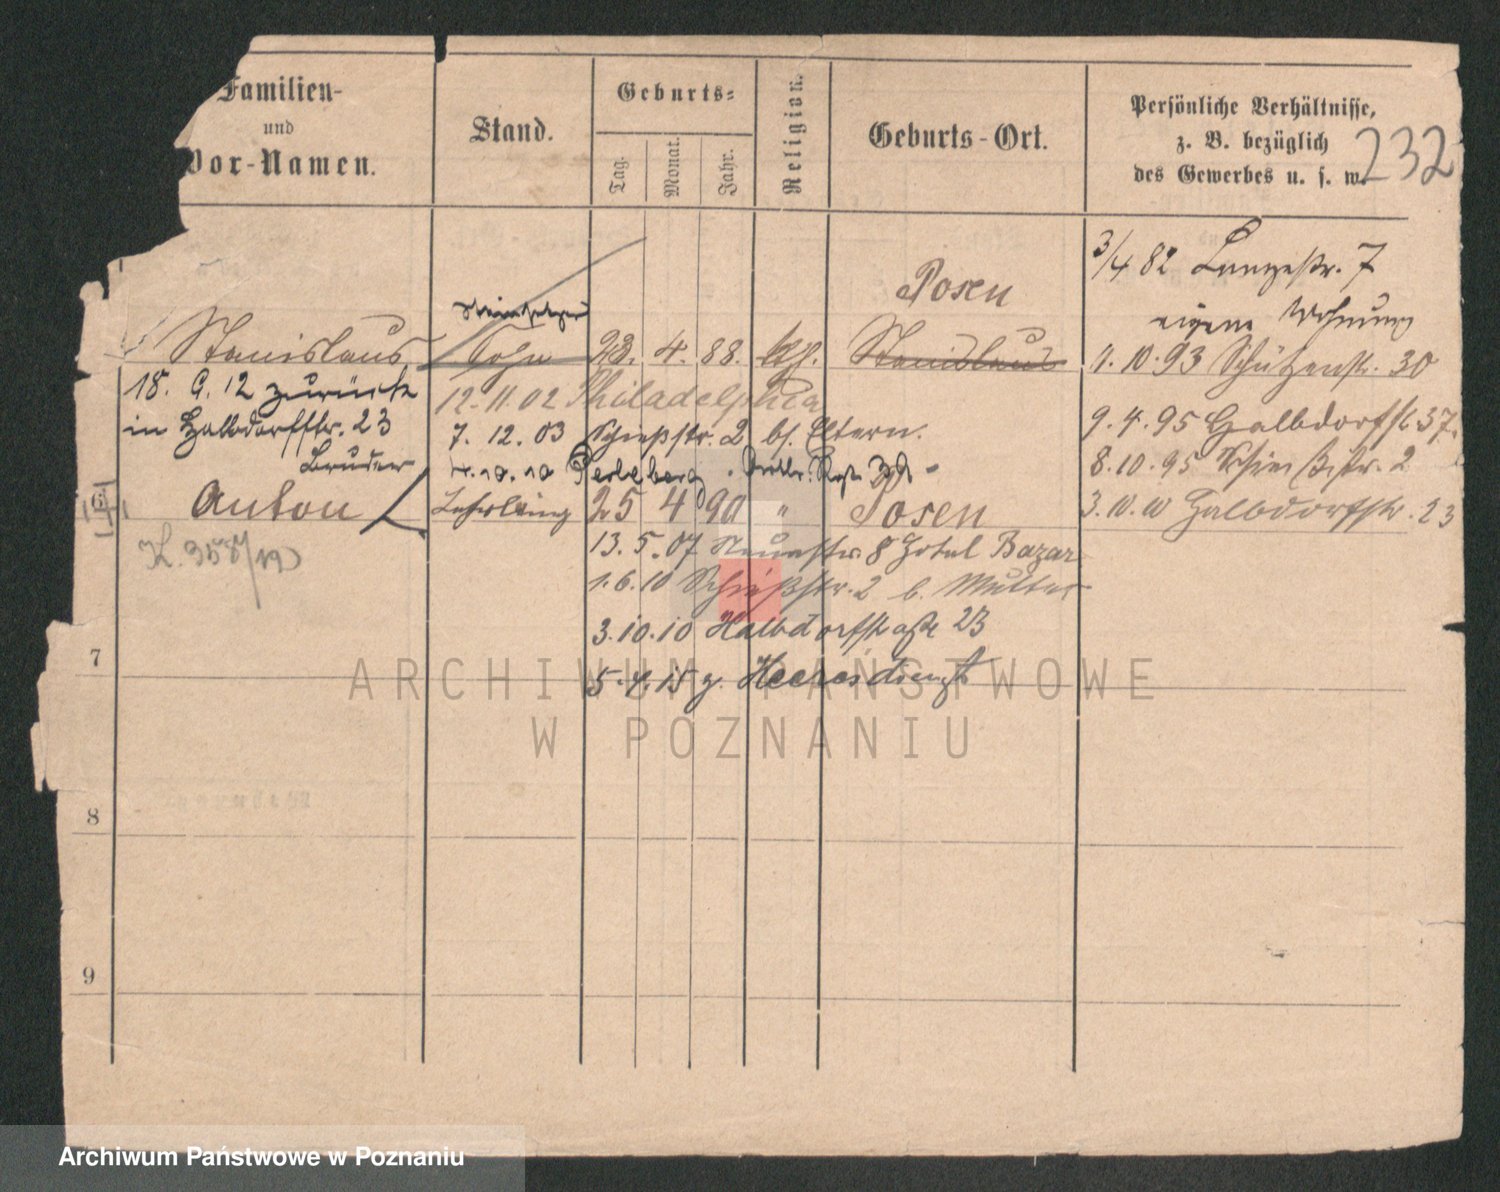 Familien-
und
Vor-Namen.
Stand.
Geburts-
Tag.
Monat.
Jahr.
Religion.
Geburts-Ort.
Persönliche Verhältnisse,
z. B. bezüglich
des Gewerbes u. s. w.
232
Stanislaus
Sohn
23. 4. 88. kth.
Posen
Stanislaus
18. 9. 12 zurück
in Halbdorfstr. 23
Bruder
12. 11. 02 Philadelphia
7. 12. 03 Schießstr. 2 b/. Eltern.
4. 10. 10 Perleberg
6
Anton
Lehrling
25 4 90 "
Posen
13. 5. 07 Neuestr. 8 Hotel Bazar
1. 6. 10 Schießstr. 2 b. Mutter
3. 10. 10 Halbdorfstraße 23
5. 4. 15 z. Heeresdienst
3/4 82 Langestr. 7
eigene Wohnung
1. 10. 93 Schützenstr. 30
9. 4. 95 Halbdorfstr. 37.
8. 10. 95 Schießstr. 2
3. 10. 10 Halbdorfstr. 23
7
8
9
ARCHIWUM PAŃSTWOWE
W POZNANIU
Archiwum Państwowe w Poznaniu